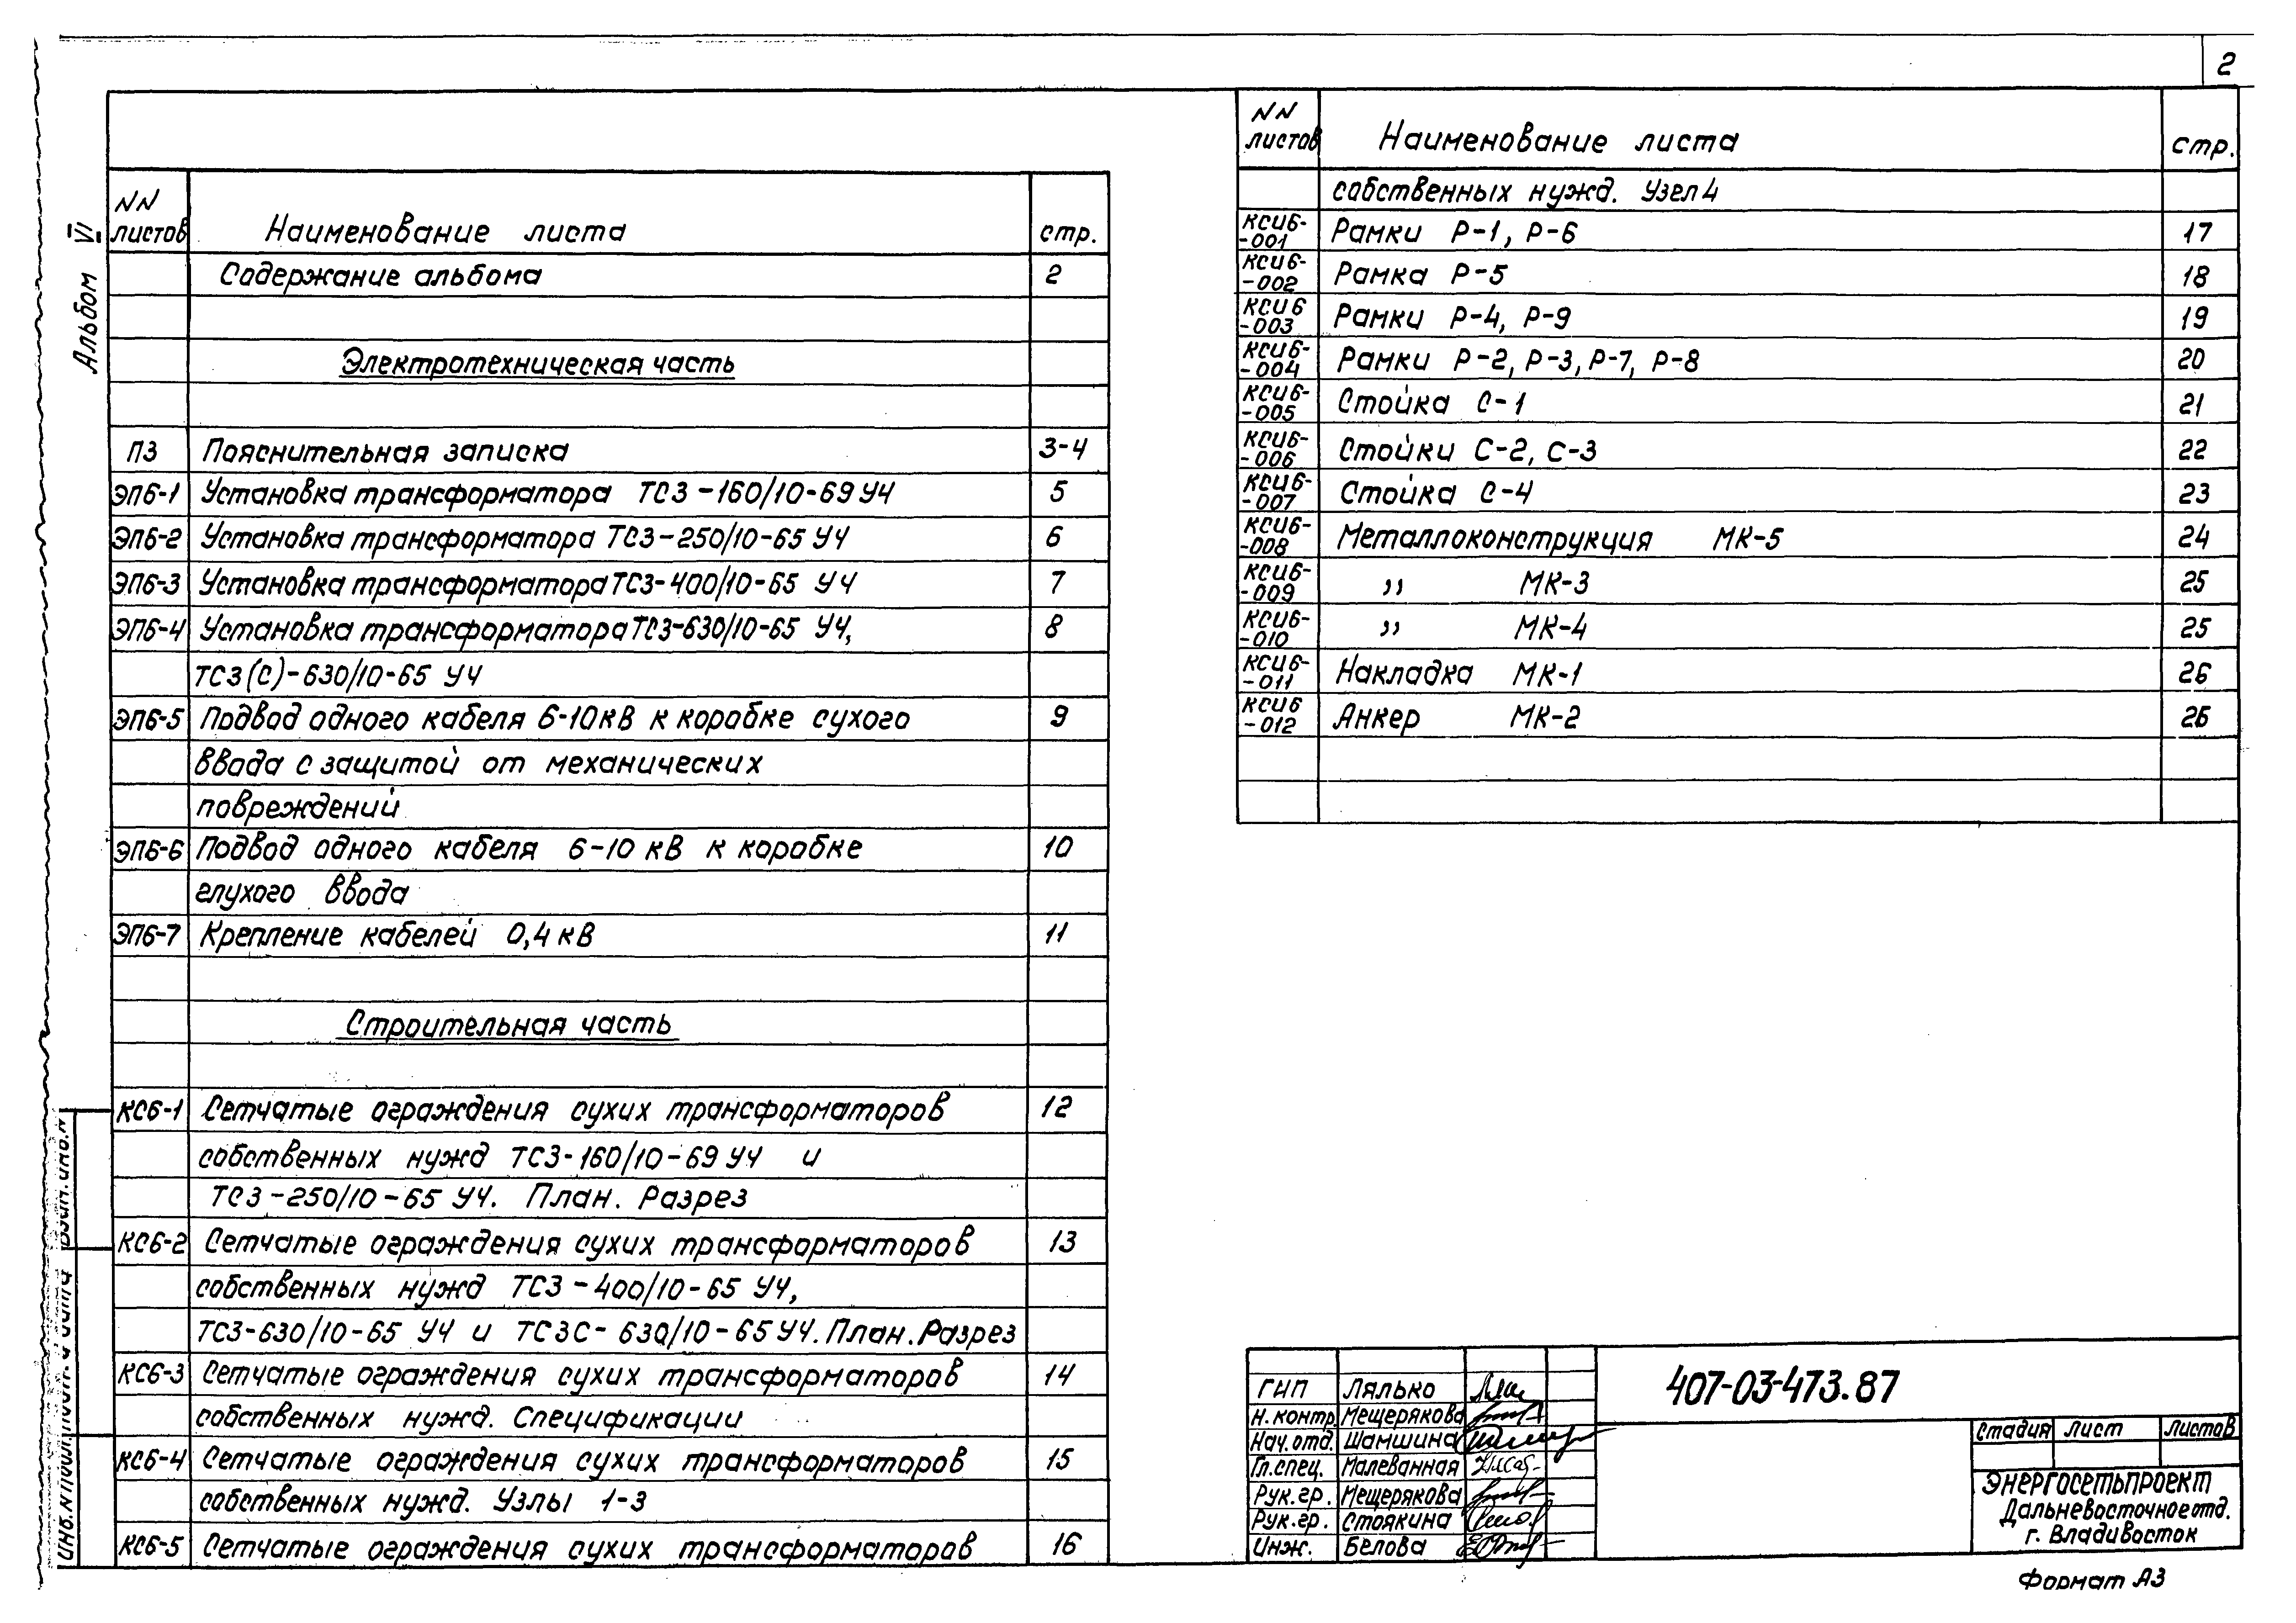 2
Альбом VI
NN листов Наименование листа стр.
Содержание альбома 2
Электротехническая часть
ПЗ Пояснительная записка 3-4
ЭП6-1 Установка трансформатора ТСЗ-160/10-69 УЧ 5
ЭП6-2 Установка трансформатора ТСЗ-250/10-65 УЧ 6
ЭП6-3 Установка трансформатора ТСЗ-400/10-65 УЧ 7
ЭП6-4 Установка трансформатора ТСЗ-630/10-65 УЧ, 8
ТСЗ(С)-630/10-65 УЧ
ЭП6-5 Подвод одного кабеля 6-10кВ к коробке сухого 9
ввода с защитой от механических
повреждений
ЭП6-6 Подвод одного кабеля 6-10 кВ к коробке 10
глухого ввода
ЭП6-7 Крепление кабелей 0,4 кВ 11
Строительная часть
КС6-1 Сетчатые ограждения сухих трансформаторов 12
собственных нужд ТСЗ-160/10-69 УЧ и
ТСЗ-250/10-65 УЧ. План. Разрез
КС6-2 Сетчатые ограждения сухих трансформаторов 13
собственных нужд ТСЗ-400/10-65 УЧ,
ТСЗ-630/10-65 УЧ и ТСЗС-630/10-65 УЧ. План. Разрез
КС6-3 Сетчатые ограждения сухих трансформаторов 14
собственных нужд. Спецификации
КС6-4 Сетчатые ограждения сухих трансформаторов 15
собственных нужд. Узлы 1-3
КС6-5 Сетчатые ограждения сухих трансформаторов 16
NN листов Наименование листа стр.
собственных нужд. Узел 4
КСИ6-001 Рамки Р-1, Р-6 17
КСИ6-002 Рамка Р-5 18
КСИ6-003 Рамки Р-4, Р-9 19
КСИ6-004 Рамки Р-2, Р-3, Р-7, Р-8 20
КСИ6-005 Стойка С-1 21
КСИ6-006 Стойки С-2, С-3 22
КСИ6-007 Стойка С-4 23
КСИ6-008 Металлоконструкция МК-5 24
КСИ6-009 ,, МК-3 25
КСИ6-010 ,, МК-4 25
КСИ6-011 Накладка МК-1 26
КСИ6-012 Анкер МК-2 26
407-03-473.87
ГИП Лялько
Н.контр. Мещерякова
Нач.отд. Шамшина
Гл.спец. Малеванная
Рук.гр. Мещерякова
Рук.гр. Стоякина
Инж. Белова
Стадия Лист Листов
Энергосетьпроект
Дальневосточное отд.
г. Владивосток
Формат А3